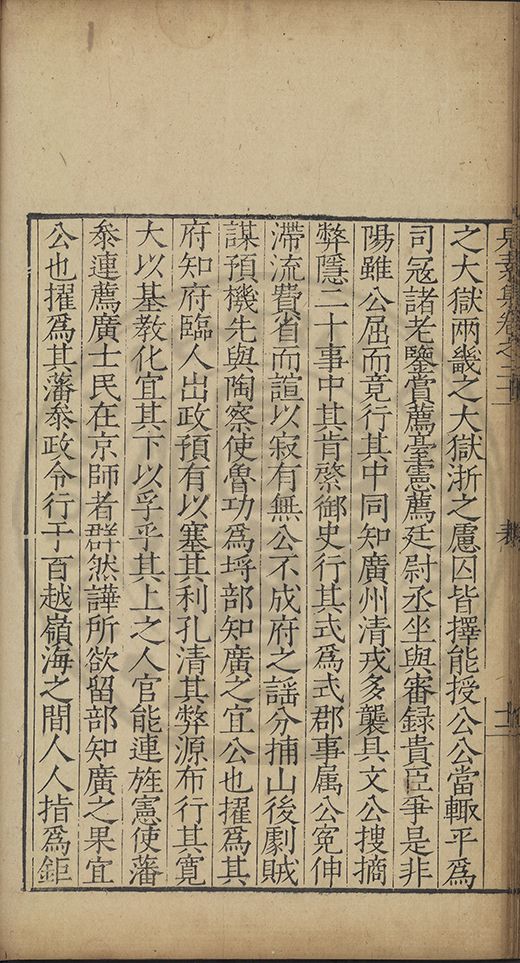 見素集卷之二
之大獄兩畿之大獄浙之慮囚皆擇能授公公當輙平爲
司冦諸老鑒賞薦臺憲薦廷尉丞坐與審録貴臣爭是非
陽雖公屈而竟行其中同知廣州清戎多襲具文公搜摘
弊隱二十事中其肯綮御史行其式爲式郡事属公寃伸
滯流費省而諠以寂有無公不成府之謡分捕山後劇賊
謀預機先與陶察使魯功爲埒部知廣之宜公也擢爲其
府知府臨人出政預有以塞其利孔清其弊源布行其寛
大以基教化宜其下以孚乎其上之人官能連旌憲使藩
叅連薦廣士民在京師者群然譁所欲留部知廣之果宜
公也擢爲其藩叅政令行于百越嶺海之間人人指爲鉅